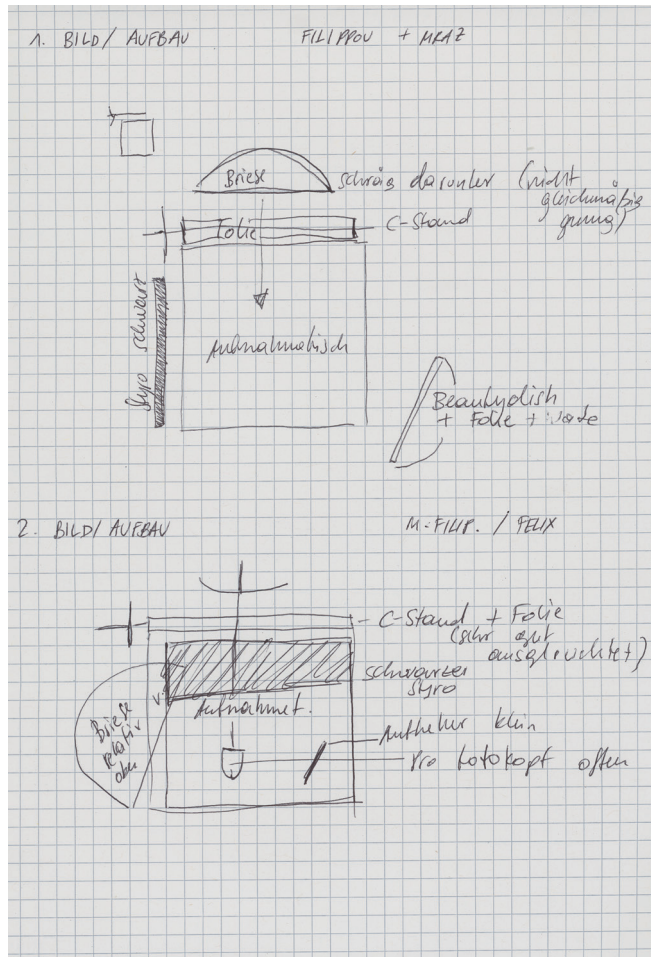 1. BILD/ AUFBAU FILIPPOU + MRAZ
Briese
schräg darunter (nicht
gleichmäßig
genug)
Folie
C-Stand
Styro schwarz
Aufnahmetisch
Beautydish
+ Folie +
2. BILD/ AUFBAU M. FILIP. / FELIX
C-Stand + Folie
(sehr gut
ausgeleuchtet)
schwarzer
Styro
Aufnahmet.
Briese
relativ
oben
Aufheller klein
Pro Fotokopf offen